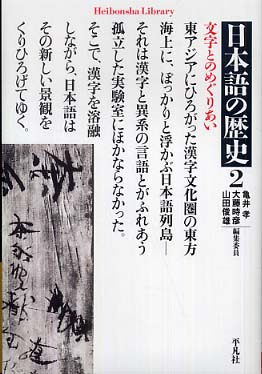 Heibonsha Library
日本語の歴史2
亀井 孝
大藤時彦
山田俊雄
編集委員
平凡社
文字とのめぐりあい
東アジアにひろがった漢字文化圏の東方
海上に、ぽっかりと浮かぶ日本語列島―
それは漢字と異系の言語とがふれあう
孤立した実験室にほかならなかった。
そこで、漢字を溶融
しながら、日本語は
その新しい景観を
くりひろげてゆく。